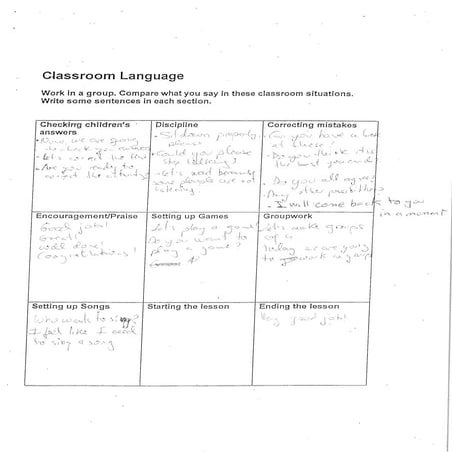 Classroom Language
Work in a group. Compare what you say in these classroom situations.
Write some sentences in each section.
Checking children's
answers
Now, we are going
to check your answers
Let's correct the
Are you ready to
correct the activity?
Discipline
Sit down properly
please
Could you please
stop talking?
Let's wait because
some people are not
listening
Correcting mistakes
Can you have a look
at these?
Do you think it's
the best you could
Do you all agree?
Any other
I will come back to you
in a moment
Encouragement/Praise
Good job!
Great!
Well done!
Congratulations!
Setting up Games
Let's play a game!
Do you want to
play a game?
Groupwork
Let's make groups
of
Today we are going
to work in groups
Setting up Songs
Who wants to sing?
I feel like I need
to sing a song
Starting the lesson
Ending the lesson
Very good job!